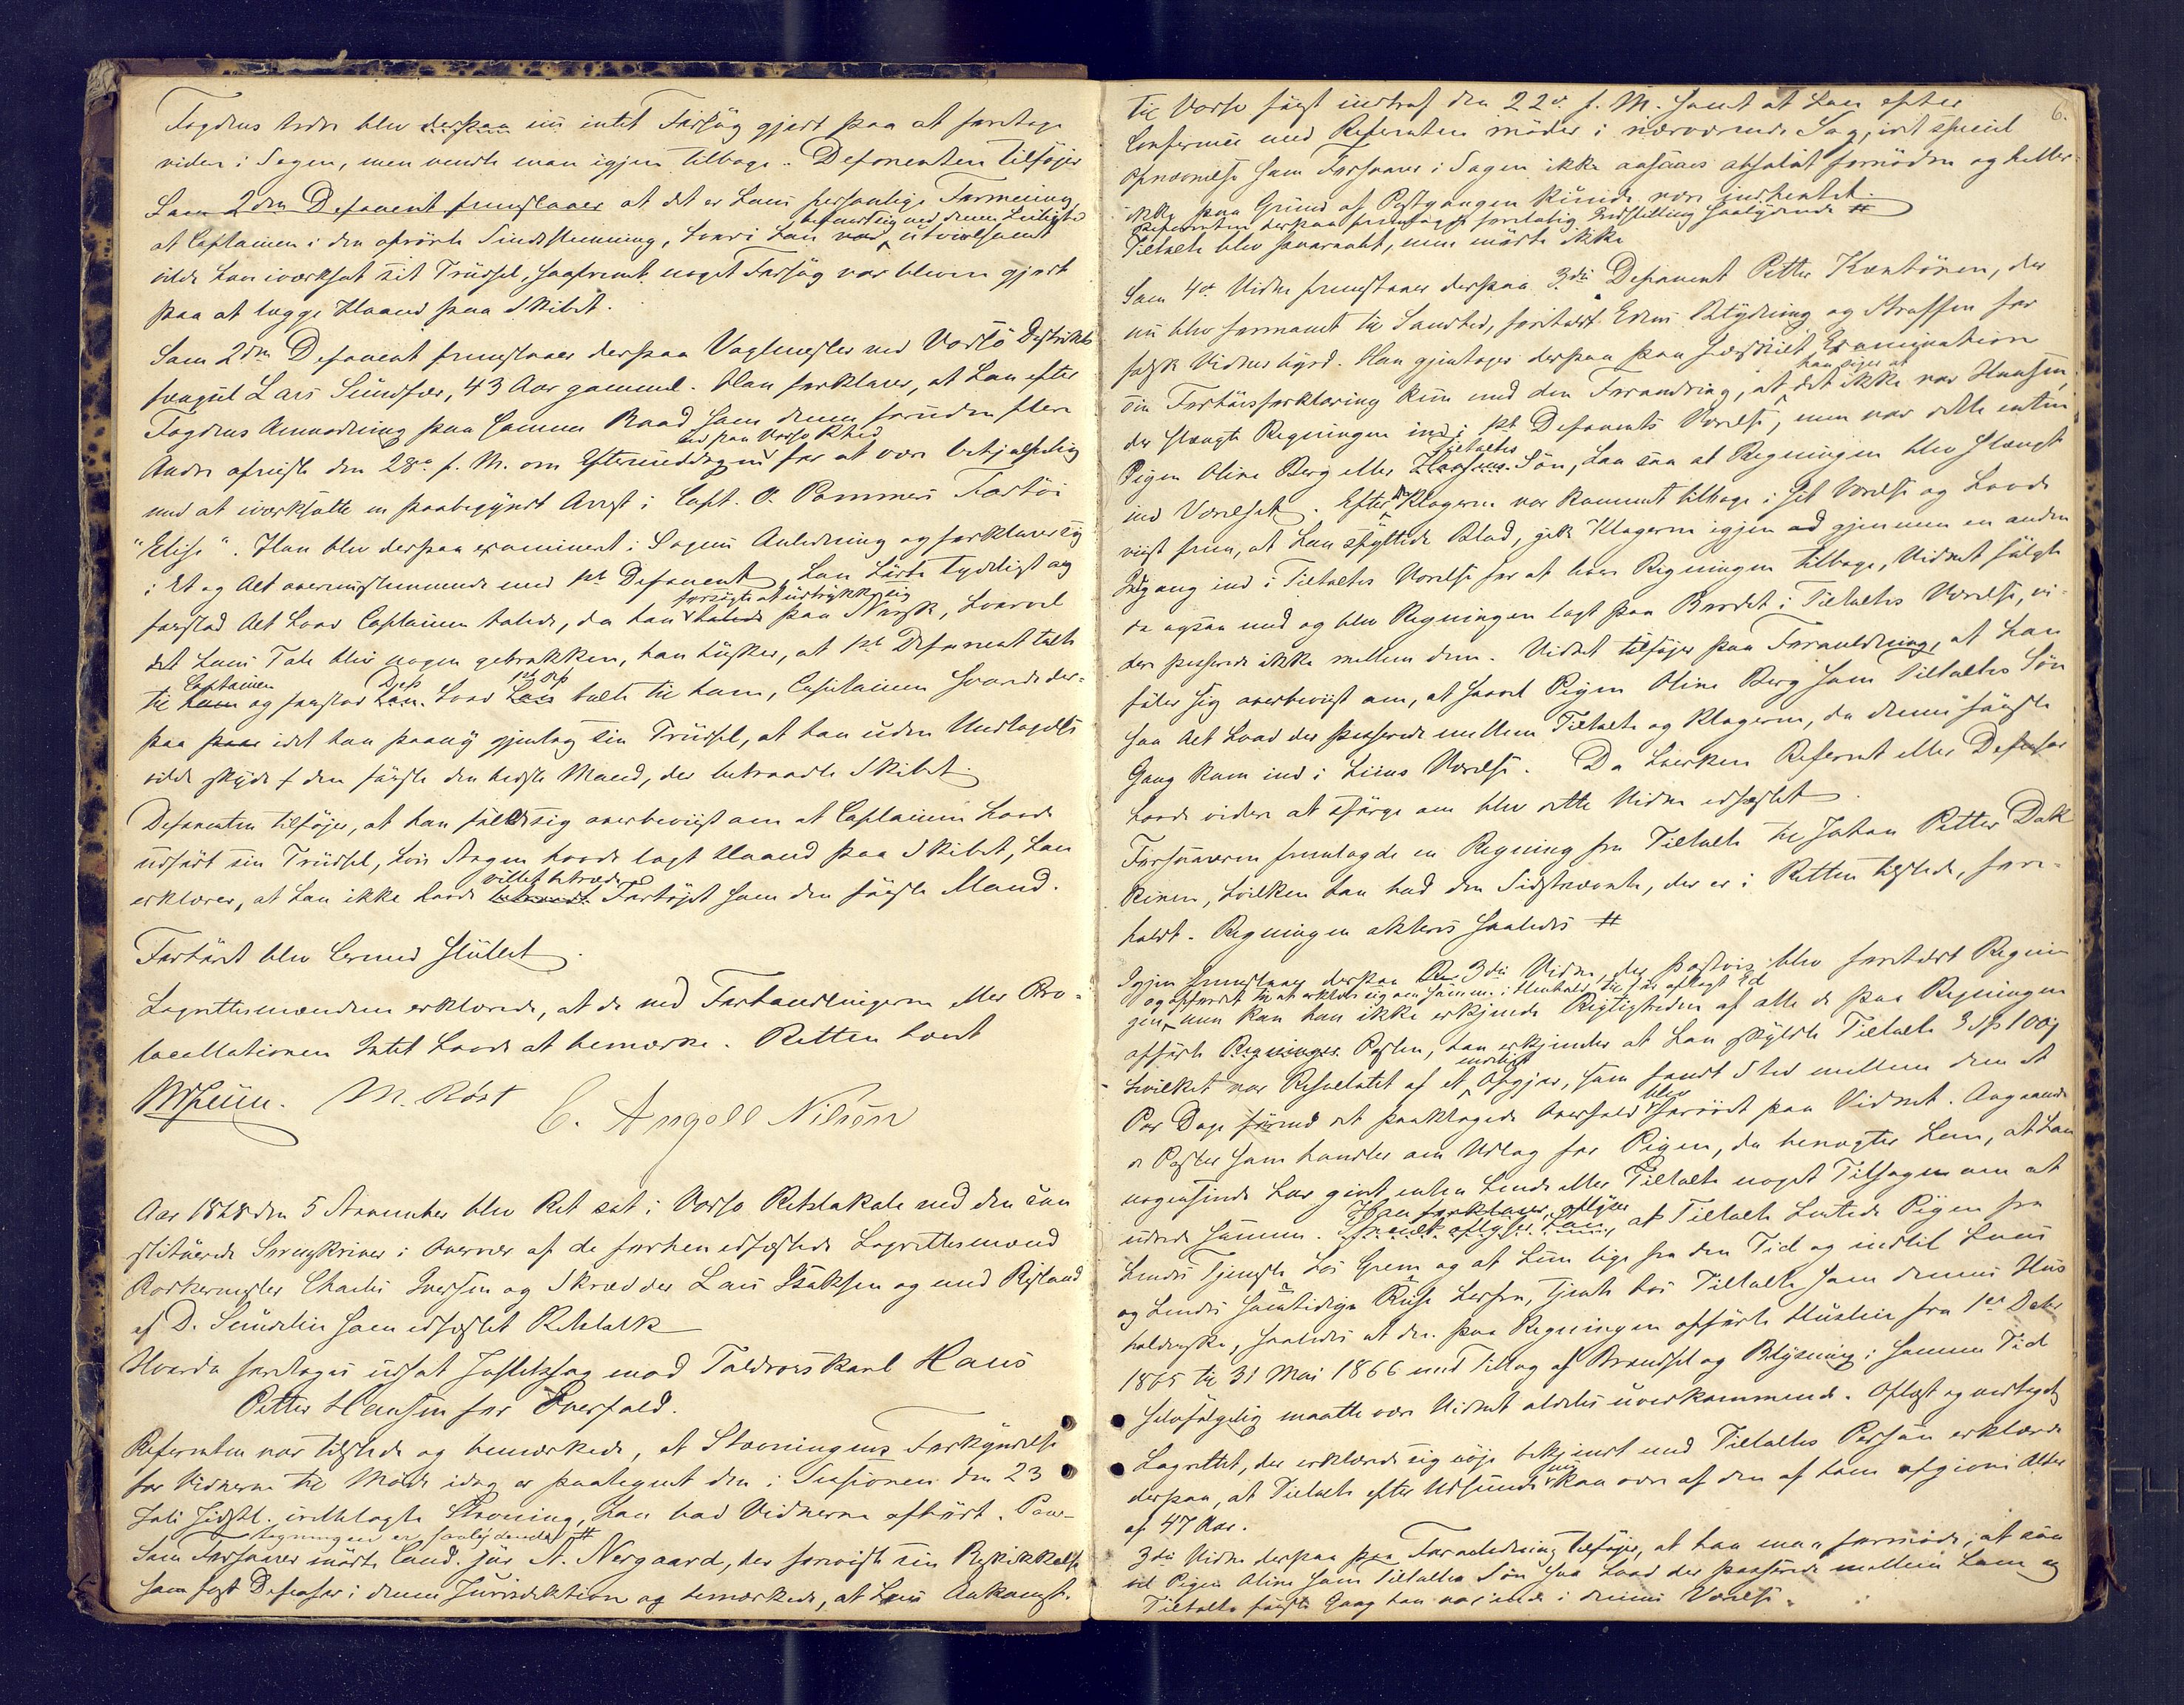 Fogdens Ordre blev derpaa nu intet Forsøg gjort paa at foretage
videre i Sagen, men vendte man igjen tilbage. Deponenten tilføjer
Som 2den Deponent fremstaaer at det er hans personlige Formening,
befandt sig ved denne Leilighed
at Captainen i den oprørte Sindsstemning, hvori han var utvivlsomt
vilde have iværksat sit Trudsel, saafremt noget Forsøg var bleven gjort
paa at lægge Haand paa Skibet.
Som 2den Deponent fremstaaer derpaa Vagtmester ved Vardø Distrikts
fængsel Lars Sundfær, 43 Aar gammel. Han forklarer, at han efter
Fogdens Anmodning paa samme Maade som denne foruden flere
ud paa Vardø Rhed
Andre afreiste den 28de f. M. om Eftermiddagen for at være behjælpelig
med at iværksætte en paabegyndt Arrest i Capt. O. Pommers Fartøi
"Elise". Han blev derpaa examineret i Sagens Anledning og forklarer sig
i Et og Alt overensstemmende med 1ste Deponent, han hørte tydeligt og
forsøgte at udtrykke sig
forstod Alt hvad Captainen talede, da han talede paa Norsk, hvorvel
det hans Tale blev nogen gebrokken, han husker, at 1ste Deponent talte
Captainen Dep 1ste Dep
til ham og forstod han hvad han talte til ham, Captainen svarede der-
paa paa idet han paany gjentog sin Trudsel, at han uden Undtagelse
vilde skyde den første den bedste Mand, der betraadte Skibet.
Deponenten tilføjer, at han føler sig overbeviist om at Captainen havde
udført sin Trudsel, hvis Nogen havde lagt Haand paa Skibet, han
villet betræde
erklærer, at han ikke havde betraadt Fartøjet som den første Mand.
Forhøret blev hermed sluttet.
Lagrettesmændene erklærede, at de ved Forhandlingerne eller Pro-
tocollationen Intet havde at bemærke. Retten hævet
M. Røst C. Angell Nilssen
Aar 1868 den 5 November blev Ret sat i Vardø Retslokale ved den con
stituerede Sorenskriver i Overvær af de forhen edfæstede Lagrettesmænd
Rorkermester Charles Iversen og Skrædder Lars Isaksen og med Bistand
af D. Sundelin som edfæstet Rettstolk
Hvorda foretoges udsat Justitssag mod Toldroerskarl Hans
Petter Hansen for Overfald.
Referenten var tilstede og bemærkede, at Stævningens Forkyndelse
for Vidnerne til Møde idag er paategnet den i Sessionen den 23
Juli sidstl. irettelagte Stævning, han bad Vidnerne afhørt. Paa-
tegningen er saalydende #
Som Forsvarer mødte Cand. jur N. Nergaard, der foreviste sin Beskikkelse
som fast Defensor i denne Jurisdiktion og bemærkede, at hans Ankomst
6.
til Vardø først indtraf den 22de f. M. samt at han efter
Conference med Referenten møder i nærværende Sag, idet speciel
Opnævnelse som Forsvarer i Sagen ikke ansaaes absolut fornøden og heller
ikke paa Grund af Postgangen kunde være indhentet.
Referenten derpaa fremlagde foreløbig Indstilling saalydende #
Tiltalte blev paaraabt, men mødte ikke
Som 4de Vidne fremstaaer derpaa 3die Deponent Petter Kantönen, der
nu blev formanet til Sandhed, foreholdt Edens Betydning og Straffen for
falsk Vidnesbyrd. Han gjentager derpaa paa speciel Examination
han siger at
sin Forhørsforklaring kun med den Forandring, at det ikke var Hansen,
der slængte Regningen ind i 1ste Deponents Værelse, men var dette enten
Tiltaltes
Pigen Oline Berg eller Hansens Søn, han saa at Regningen blev slængt
ind Værelset. Efterat Klageren var kommet tilbage i sit Værelse og havde
viist frem, at han spyttede Blod, gik Klageren igjen ad gjennem en anden
Indgang ind i Tiltaltes Værelse for at have Regningen tilbage, Vidnet fulgte
da ogsaa med og blev Regningen lagt paa Bordet i Tiltaltes Værelse, vi-
dere passerede ikke mellem dem. Vidnet tilføjer paa Foranledning, at han
føler sig overbeviist om, at saavel Pigen Oline Berg som Tiltaltes Søn
saa Alt hvad der passerede mellem Tiltalte og Klageren, da denne første
Gang kom ind i hiins Værelse. Da hverken Referent eller Defensor
havde videre at spørge om blev dette Vidne edfæstet.
Forsvareren fremlagde en Regning fra Tiltalte til Johan Petter Dak
kinen, hvilken han bad den Sidstnævnte, der er i Retten tilstede, fore-
holdt. Regningen akteres saaledes #
Igjen fremstaaer derpaa 3die Vidne, der postvis blev foreholdt Regnin
og opfordret til at erklære sig om samme i Henhold til sin aflagt Ed
gen, men kan han ikke erkjende Rigtigheden af alle de paa Regningen
opførte Regninger Poster, han erkjender at han skyldte Tiltalte 3 Sp 100 s
mindeligt
hvilket var Resultatet af et Opgjør, som fandt Sted mellem dem et
blev
Par Dage førend det paaklagede Overfald forøvet paa Vidnet. Angaaende
de Poster som handler om Udlæg for Pigen, da benægter han, at han
nogensinde har givet enten hende eller Tiltalte noget Tilsagn om at
Han forklarer, oplyser
udrede samme. Specielt oplyser han, at Tiltalte hentede Pigen fra
hendes Tjeneste hos Grein og at hun lige fra den Tid og indtil hans
og hendes samtidige Reise herfra, tjente hos Tiltalte som dennes Huus
holderske, saaledes at den paa Regningen opførte Huusleie fra 1ste Dcbr
1865 til 31 Mai 1866 med Tillæg af Brændsel og Belysning i samme Tid
selvfølgelig maatte være Vidnet aldeles uvedkommende. Oplæst og vedtaget
Lagrettet, der erklærede sig nøje bekjendt med Tiltaltes Person erklærede
derpaa, at Tiltalte efter Udseende kan være af den af ham opgivne Alder
af 47 Aar.
3die Vidne derpaa paa Foranledning tilføjer, at han maa formode, at saa
vel Pigen Oline som Tiltaltes Søn saa hvad der passerede mellem ham og
Tiltalte første Gang han var inde i dennes Værelse.